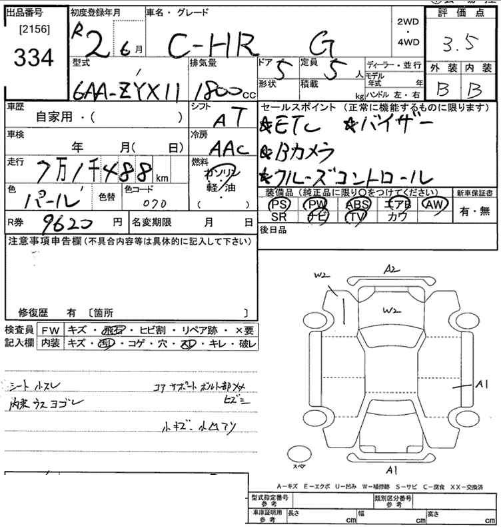 出品番号
[2156]
334
初度登録年月
R2年6月
車名・グレード
C-HR G
2WD
4WD
評価点
3.5
型式
6AA-ZYX11
排気量
1800cc
ドア 5
定員 5人
形状
積載 kg
ディーラー・並行
モデル年式 年
ハンドル 左・右
外装 内装
B B
車歴
自家用・( )
シフト
AT
車検
年 月(日)
冷房
AAC
走行
7万1千488km
燃料
ガソリン
軽/油
色
パール
色替
色コード
070
R券
9620円
名変期限 月 日
セールスポイント(正常に機能するものに限ります)
★ETC ★バイザー
★Bカメラ
★クルーズコントロール
装備品(純正品に限り○をつけてください)
新車保証書
PS PW ABS エアB AW
SR ナビ TV カワ
有・無
後日品
注意事項申告欄(不具合内容等は具体的に記入して下さい)
修復歴 有 〔箇所
検査員記入欄
FW キズ・飛石・ヒビ割・リペア跡・×要
内装 キズ・汚・コゲ・穴・スレ・キレ・破レ
シート小スレ
内装ウスヨゴレ
コアサポートボルト部サメ
ヒズミ
小キズ・小凹アリ
A2
W2
W2
A1
A1
スペア
A-キズ E-エクボ U-凹み W-補修跡 S-サビ C-腐食 XX-交換済
型式指定番号
参考
類別区分番号
参考
車庫証明用
参考
長さ cm
幅 cm
高さ cm